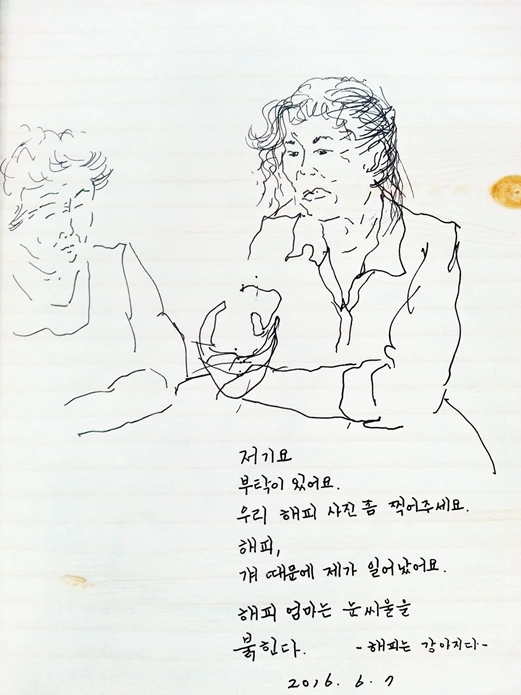 저기요
부탁이 있어요.
우리 해피 사진 좀 찍어주세요.
해피,
걔 때문에 제가 일어났어요.
해피 엄마는 눈씨울을
붉힌다. -해피는 강아지다-
2016. 6. 7